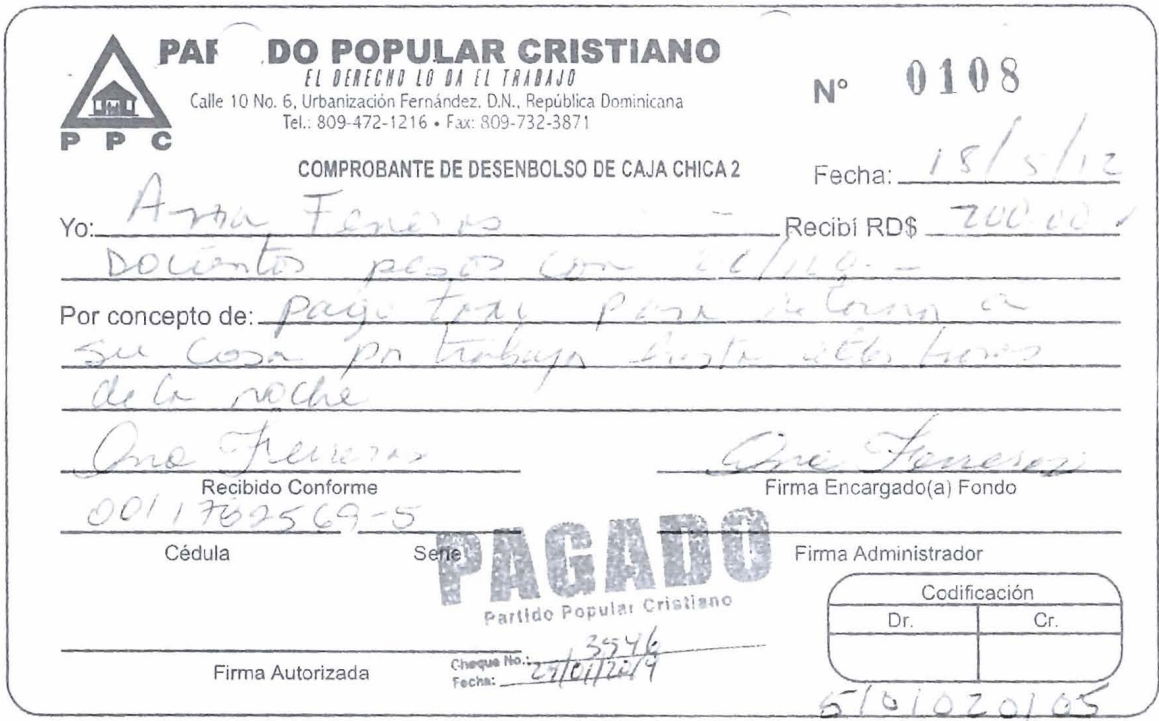 PAR DO POPULAR CRISTIANO
EL DERECHO LO DA EL TRABAJO
Calle 10 No. 6, Urbanización Fernández, D.N., República Dominicana
Tel.: 809-472-1216 • Fax: 809-732-3871
P P C
Nº 0108
COMPROBANTE DE DESENBOLSO DE CAJA CHICA 2
Fecha: 18/5/12
Yo: Ana Ferreras Recibí RD$ 200.00
Docientos pesos con
Por concepto de: pago taxi para retorno a
su casa por trabajo hasta altas horas
de la noche
Ana Ferreras Ana Ferreras
Recibido Conforme Firma Encargado(a) Fondo
0011702569-5
Cédula Serie Firma Administrador
PAGADO
Partido Popular Cristiano
Codificación
Dr. Cr.
Cheque No.: 3546
Firma Autorizada
Fecha:
5101020105